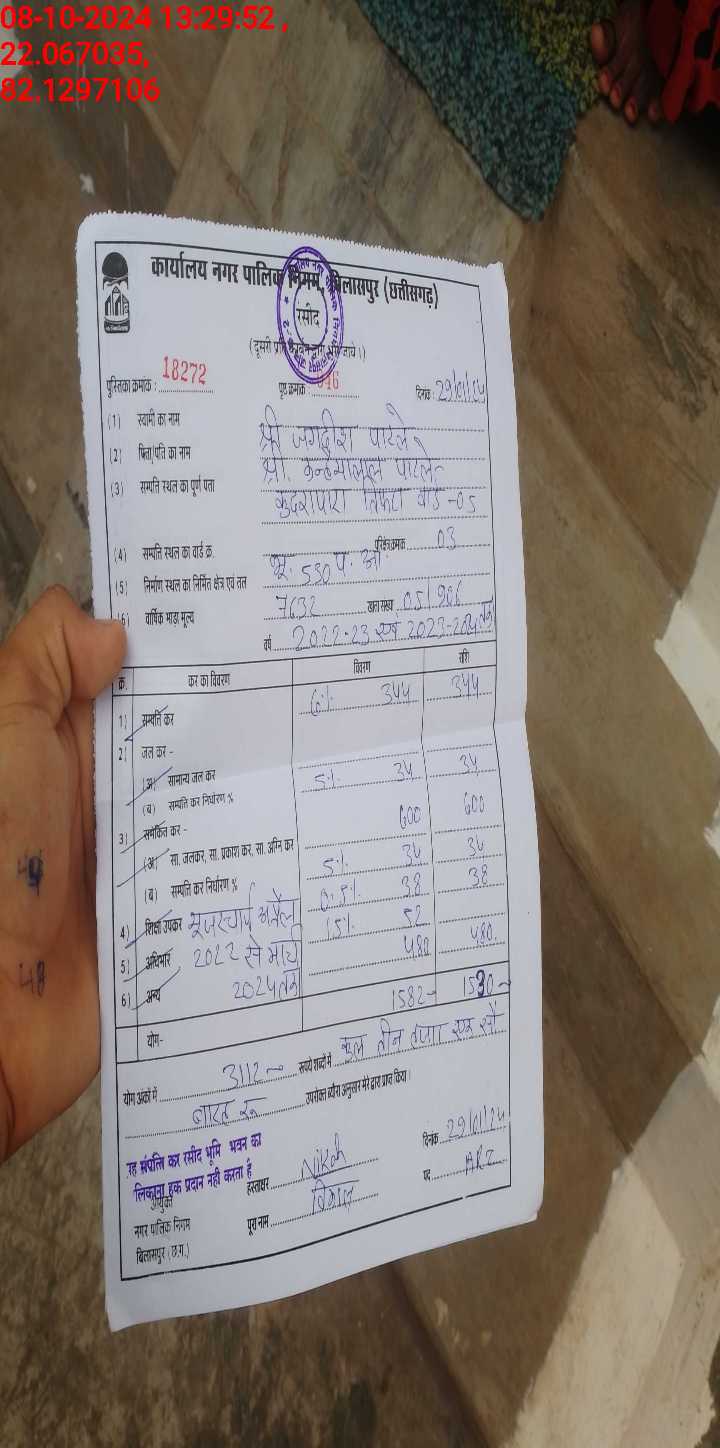 08-10-2024 13:29:52 ,
22.067035,
82.1297106
कार्यालय नगर पालिक निगम, बिलासपुर (छत्तीसगढ़)
रसीद
(दूसरी प्रति
पुस्तिका क्रमांक : 18272 पृष्ठ क्रमांक : 046 दिनांक : 29/01/24
(1) स्वामी का नाम श्री जगदीश पाटले
(2) पिता/पति का नाम श्री. कन्हैयालाल पाटले
(3) सम्पति स्थल का पूर्ण पता कुदरापारा तिफरा वार्ड -05
(4) सम्पति स्थल का वार्ड क्र. परिक्षेत्र क्रमांक 03
(5) निर्माण स्थल का निर्मित क्षेत्र एवं तल भू. 530 प. आ.
(6) वार्षिक भाड़ा मूल्य 7632 खाता संख्या 05/906
वर्ष 2022-23 एवं 2023-2024 तक
क्र. कर का विवरण विवरण राशि
1) सम्पति कर 6% 344 344
2) जल कर -
(अ) सामान्य जल कर 5% 34 34
(ब) सम्पति कर निर्धारण %
3) समेकित कर - 600 600
(अ) सा. जलकर, सा. प्रकाश कर, सा. अग्नि कर 5% 34 34
(ब) सम्पति कर निर्धारण % 0.5% 38 38
4) शिक्षा उपकर यूजरचार्ज अप्रैल 15% 52
5) अधिभार 2022 से मार्च 480 480
6) अन्य 2024 तक
योग- 1582 1530
योग अंकों में 3112 रूपये शब्दों में कुल तीन हजार एक सौ
बारह रू उपरोक्त ब्यौरा अनुसार मेरे द्वारा प्राप्त किया।
यह संपत्ति कर रसीद भूमि भवन का
लिकाना हक प्रदान नही करता है
आयुक्त
नगर पालिक निगम
बिलासपुर (छ.ग.)
हस्ताक्षर
दिनांक 29/01/24
पूरा नाम
पद ARI